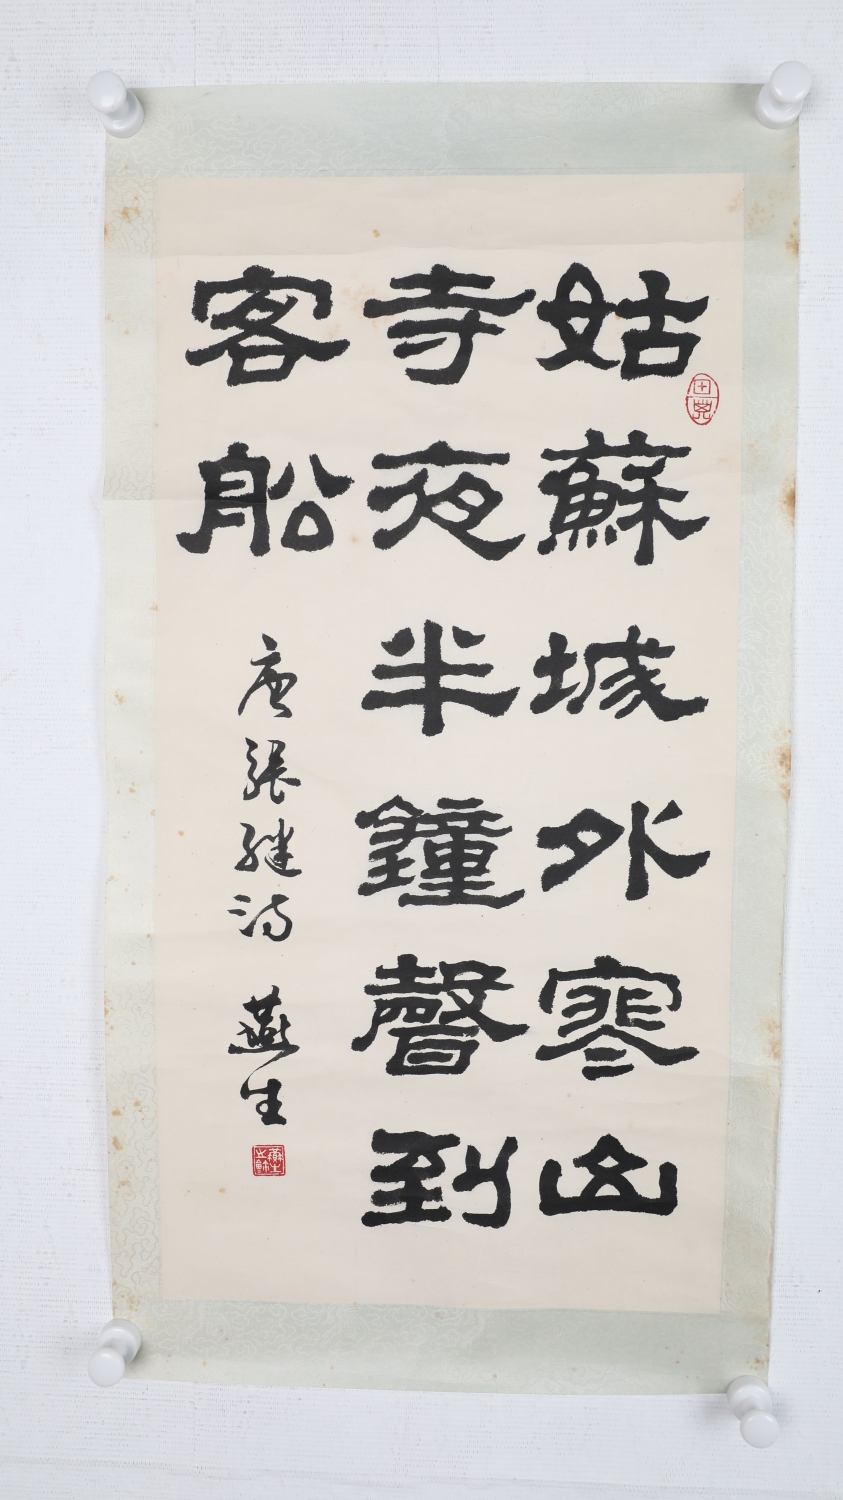 姑蘇城外寒山
寺夜半鐘聲到
客船
唐張继诗 燕生